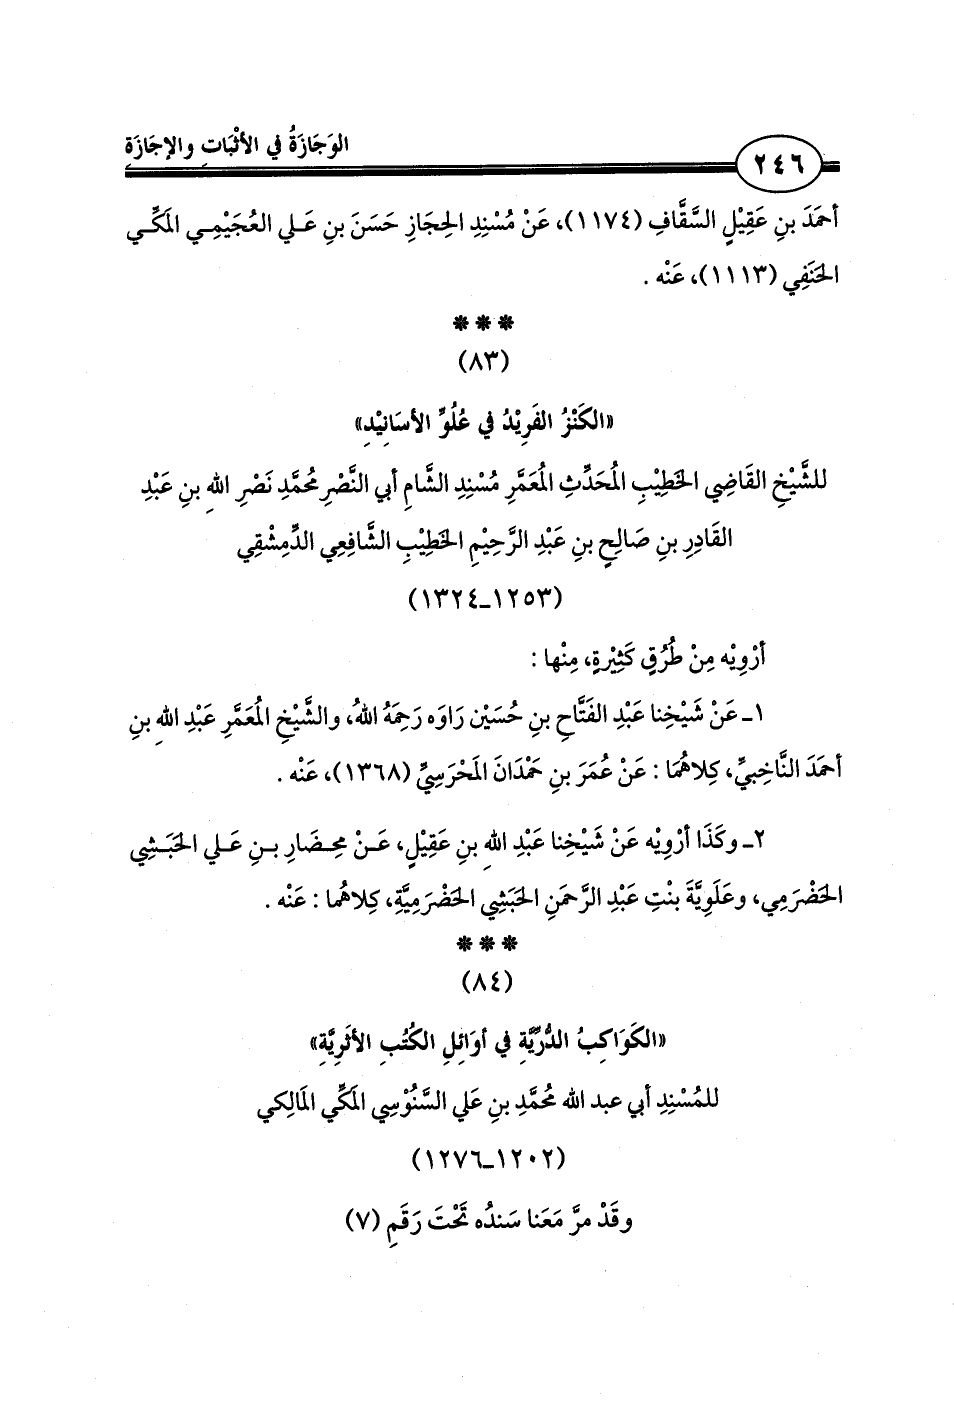 الوَجَازَةُ في الأثْبَاتِ والإجَازَةِ
٢٤٦
أحمَدَ بنِ عَقِيْلٍ السَّقَّافِ (١١٧٤)، عَنْ مُسْنِدِ الحِجَازِ حَسَنَ بنِ عَلي العُجَيْمِي المَكِّي
الحَنَفِي (١١١٣)، عَنْه .
***
(٨٣)
«الكَنْزُ الفَرِيْدُ في عُلُوِّ الأسَانِيْدِ»
للشَّيْخِ القَاضِي الخَطِيْبِ المُحَدِّثِ المُعَمَّرِ مُسْنِدِ الشَّامِ أبي النَّصْرِ مُحمَّدِ نَصْرِ اللهِ بنِ عَبْدِ
القَادِرِ بنِ صَالِحِ بنِ عَبْدِ الرَّحِيْمِ الخَطِيْبِ الشَّافِعِي الدِّمِشْقِي
(١٢٥٣ـ١٣٢٤)
أرْوِيْه مِنْ طُرُقٍ كَثِيْرةٍ، مِنْها :
١ـ عَنْ شَيْخِنا عَبْدِ الفَتَّاحِ بنِ حُسَيْن رَاوَه رَحِمَهُ اللهُ، والشَّيْخِ المُعَمَّرِ عَبْدِ اللهِ بنِ
أحمَدَ النَّاخِبيِّ، كِلاهُمَا : عَنْ عُمَرَ بنِ حَمْدَانَ المَحْرَسِيِّ (١٣٦٨)، عَنْه .
٢ـ وكَذَا أرْوِيْه عَنْ شَيْخِنا عَبْدِ اللهِ بنِ عَقِيْلٍ، عَنْ مِحضَارِ بنِ عَلي الحَبَشِي
الحَضْرَمِي، وعَلَوِيَّةَ بنْتِ عَبْدِ الرَّحمَنِ الحَبَشِي الحَضْرَمِيَّةِ، كِلاهُما : عَنْه .
***
(٨٤)
«الكَوَاكِبُ الدُّرِّيَّةِ في أوَائِلِ الكُتُبِ الأثَرِيَّةِ»
للمُسْنِدِ أبي عبد الله مُحمَّدِ بنِ عَلي السَّنُوْسِي المَكِّي المَالِكي
(١٢٠٢ـ١٢٧٦)
وقَدْ مرَّ مَعَنا سَندُه تَحْتَ رَقَمِ (٧)